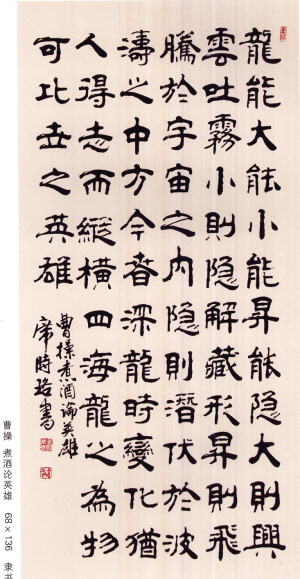 龍能大能小能昇能隐大則興
雲吐霧小則隐解藏形昇則飛
騰於宇宙之内隐則潜伏於波
濤之中方今春深龍時變化猶
人得志而縱横四海龍之為物
可比世之英雄
曹操煮酒論英雄
席時珞書
曹操 煮酒论英雄 68×136 隶书